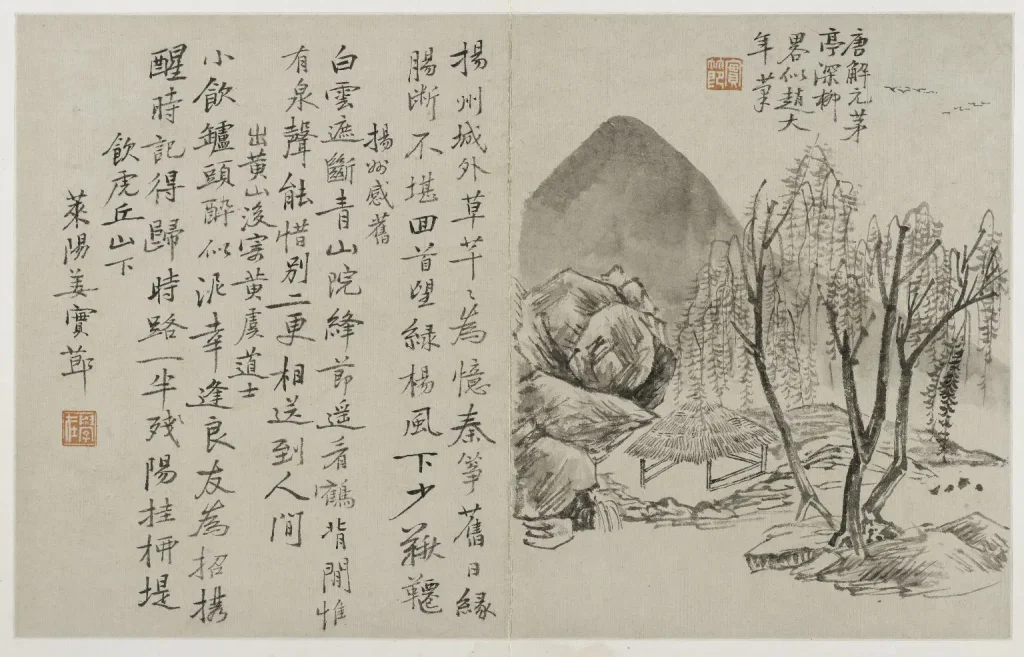 唐解元茅
亭深柳
畧似趙大
年筆
實節
揚州城外草芊〻為憶秦箏舊日緣
腸斷不堪回首望綠楊風下少鞦韆
揚州感舊
白雲遮斷青山院絳節遥看鶴背閒惟
有泉聲能惜別二更相送到人間
出黃山後寄黃虞道士
小飲罏頭醉似泥幸逢良友為招携
醒時記得歸時路一半殘陽挂柳堤
飲虎丘山下
萊陽姜實節
學在